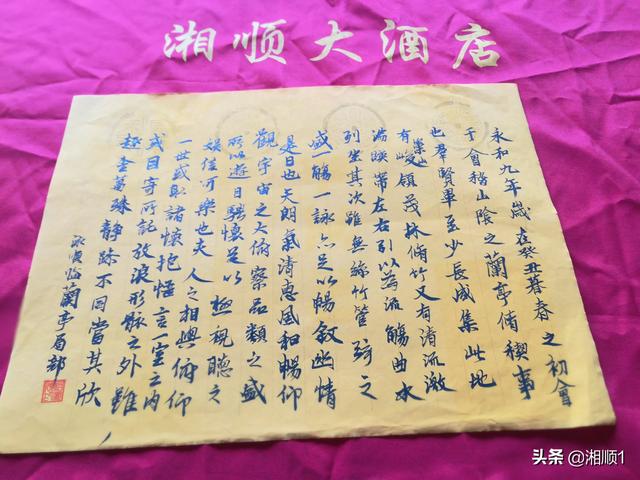 湘顺大酒店
永和九年歲在癸丑暮春之初會
于會稽山陰之蘭亭脩稧事
也羣賢畢至少長咸集此地
有崇山峻領茂林脩竹又有清流激
湍暎帶左右引以為流觴曲水
列坐其次雖無絲竹管弦之
盛一觴一詠亦足以暢敘幽情
是日也天朗氣清惠風和暢仰
觀宇宙之大俯察品類之盛
所以遊目騁懷足以極視聽之
娛信可樂也夫人之相與俯仰
一世或取諸懷抱悟言一室之內
或因寄所託放浪形骸之外雖
趣舍萬殊靜躁不同當其欣
永順臨蘭亭局部
头条 @湘顺1